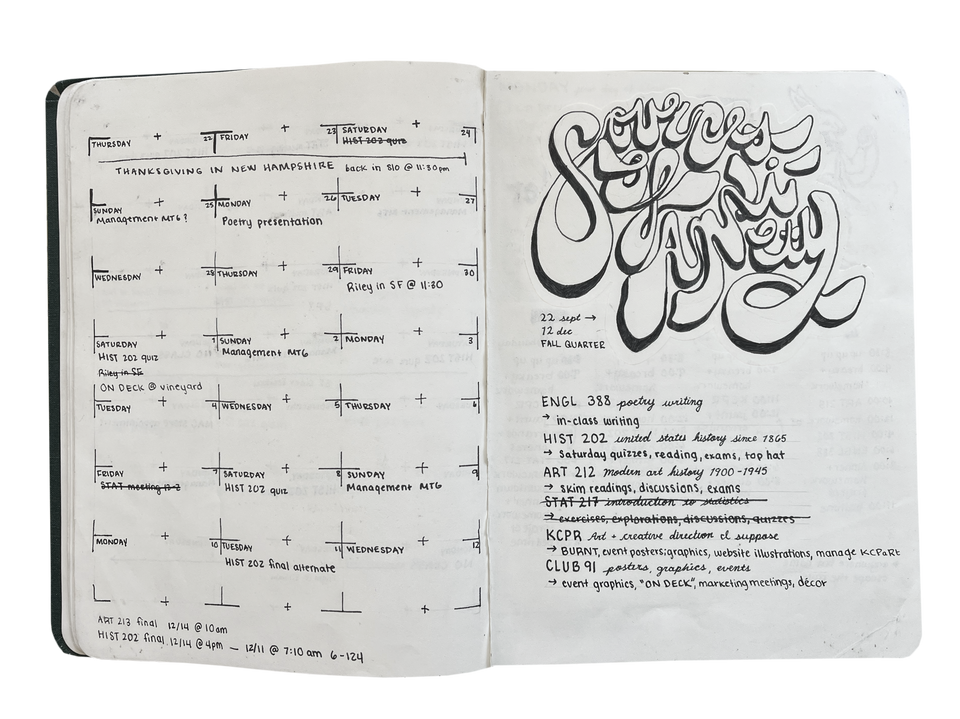 THURSDAY 22 FRIDAY 23 SATURDAY 24
HIST 202 quiz
THANKSGIVING IN NEW HAMPSHIRE back in SLO @ 11:30pm
SUNDAY 25 MONDAY 26 TUESDAY 27
Management MT6? Poetry presentation
WEDNESDAY 28 THURSDAY 29 FRIDAY 30
Riley in SF @ 11:30
SATURDAY 1 SUNDAY 2 MONDAY 3
HIST 202 quiz Management MT6
Riley in SF
ON DECK @ vineyard
TUESDAY 4 WEDNESDAY 5 THURSDAY 6
FRIDAY 7 SATURDAY 8 SUNDAY 9
STAT meeting 12-2 HIST 202 quiz Management MT6
MONDAY 10 TUESDAY 11 WEDNESDAY 12
HIST 202 final alternate
ART 213 final 12/14 @ 10am
HIST 202 final 12/14 @ 4pm — 12/11 @ 7:10 am 6-124
Sources
of
ANxiety
22 sept →
12 dec
FALL QUARTER
ENGL 388 poetry writing
→ in-class writing
HIST 202 united states history since 1865
→ Saturday quizzes, reading, exams, top hat
ART 212 modern art history 1900-1945
→ skim readings, discussions, exams
STAT 217 introduction to statistics
→ exercises, explorations, discussions, quizzes
KCPR Art + creative direction I suppose
→ BURNT, event posters; graphics, website illustrations, manage KCPaRt
CLUB 91 posters, graphics, events
→ event graphics, "ON DECK", marketing meetings, décor